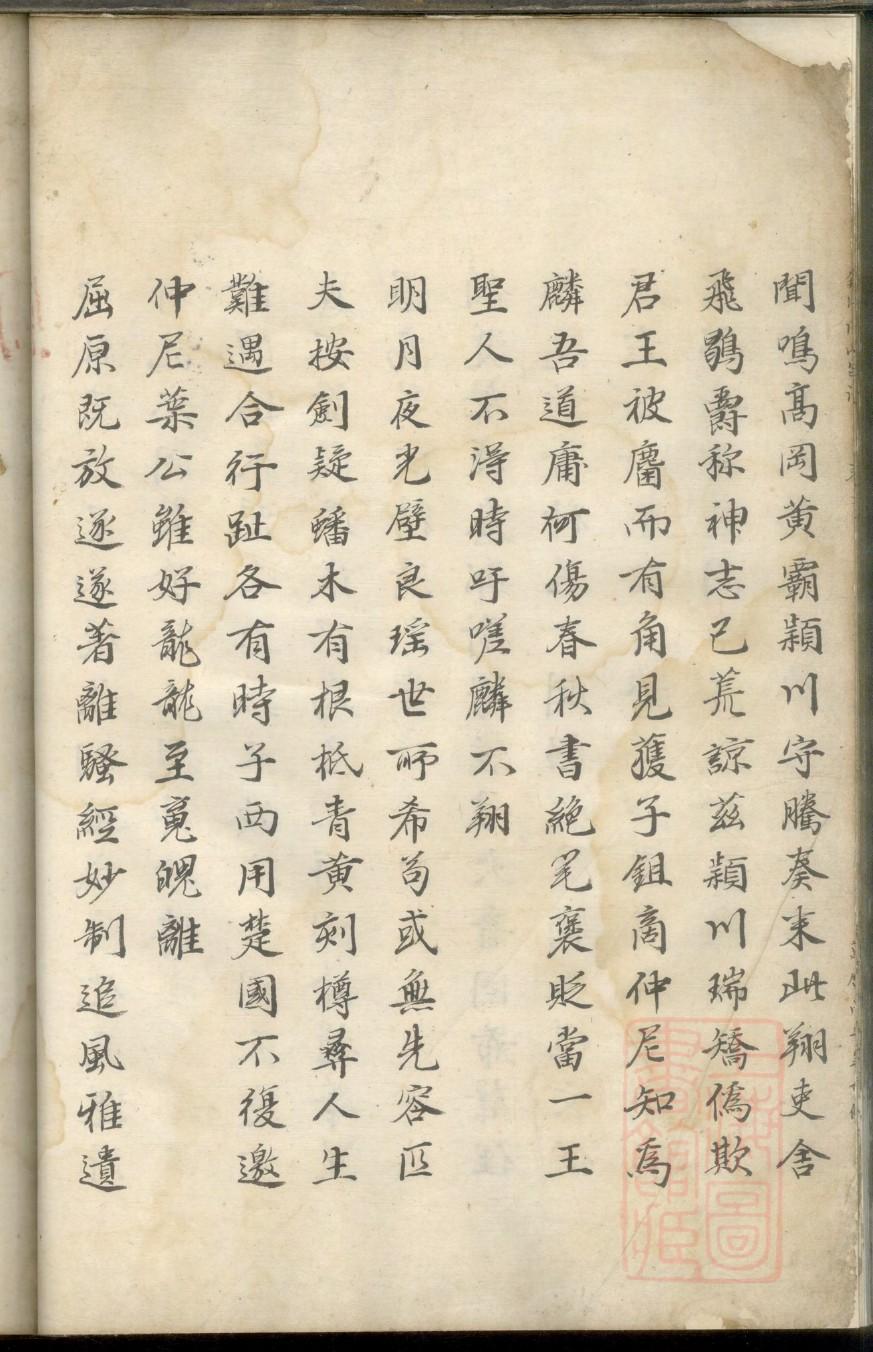 聞鳴髙岡黃霸潁川守騰奏来此翔吏舍
飛鶡爵称神志已荒諒茲潁川瑞矯僞欺
君王被麕而有角見獲子鉏商仲尼知為
麟吾道庸何傷春秋書絶笔襃貶當一王
聖人不淂時吁嗟麟不翔
明月夜光璧良瑶世所希苟或無先容匹
夫按劍疑蟠木有根柢青黃刻樽彞人生
難遇合行趾各有時子西用楚國不復邀
仲尼葉公雖好龍龍至䰟魄離
屈原既放逐遂著離騷經妙制追風雅遺